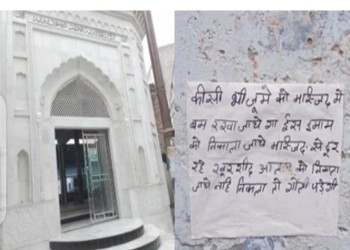 कीसी भी जूमे को मास्जिद मे
बम रखवा जाये गा ईस इमाम
को निकाला जाये मास्जिद से दूर
रहे खुरशीद आलम को निकाला
जाये नहि निकला तो गोली पड़ेगी